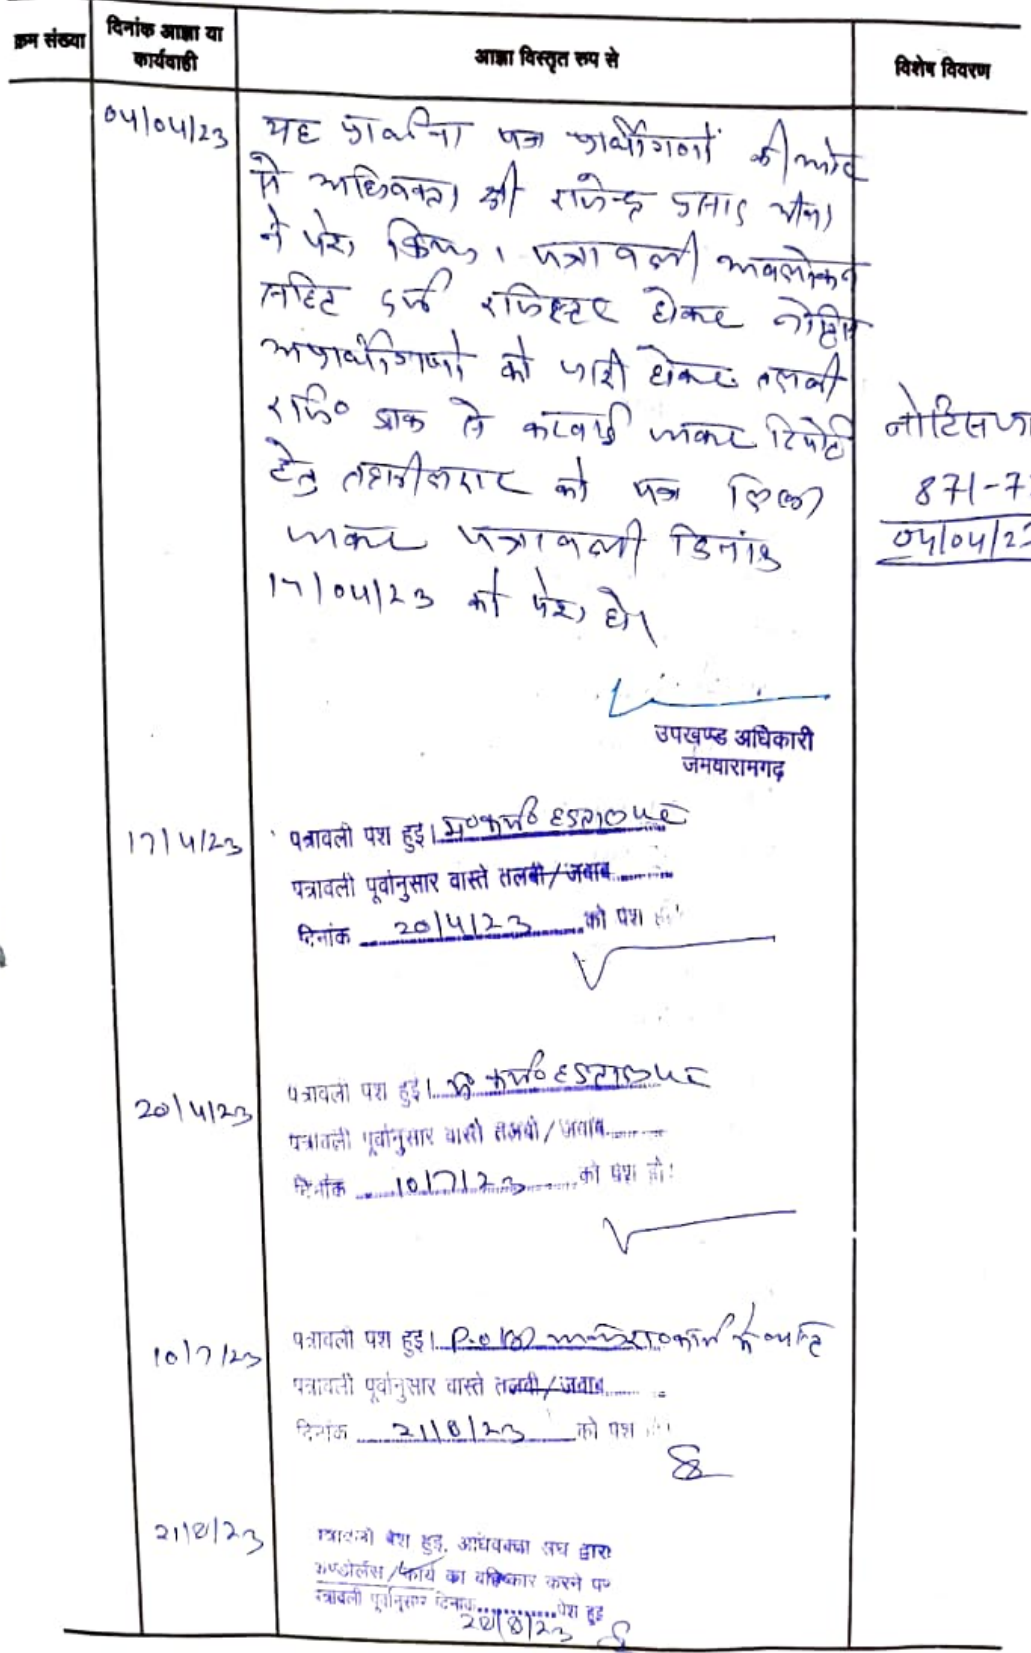 क्रम संख्या
दिनांक आज्ञा या
कार्यवाही
आज्ञा विस्तृत रूप से
विशेष विवरण
04/04/23
यह प्रार्थना पत्र प्रार्थीगणों की ओर
से अधिवक्ता श्री राजेन्द्र प्रसाद मीना
ने पेश किया। पत्रावली अवलोकन
सहित दर्ज रजिस्टर होकर नोटिस
अप्रार्थीगणों को जारी होकर तलबी
रजि० डाक से करवाई जाकर रिपोर्ट
हेतु तहसीलदार को पत्र लिखा
जाकर पत्रावली दिनांक
17/04/23 को पेश हो।
नोटिस
871-7
04/04/23
उपखण्ड अधिकारी
जमवारामगढ़
17/4/23
पत्रावली पेश हुई।
पत्रावली पूर्वानुसार वास्ते तलबी/जवाब
दिनांक 20/4/23 को पेश हो
20/4/23
पत्रावली पेश हुई।
पत्रावली पूर्वानुसार वास्ते तलबी/जवाब
दिनांक 10/7/23 को पेश हो।
10/7/23
पत्रावली पेश हुई। P.O
पत्रावली पूर्वानुसार वास्ते तलबी/जवाब
दिनांक 21/8/23 को पेश
21/8/23
पत्रावली पेश हुई, अधिवक्ता संघ द्वारा
कण्डोलेंस/कार्य का बहिष्कार करने पर
पत्रावली पूर्वानुसार दिनांक पेश हुई